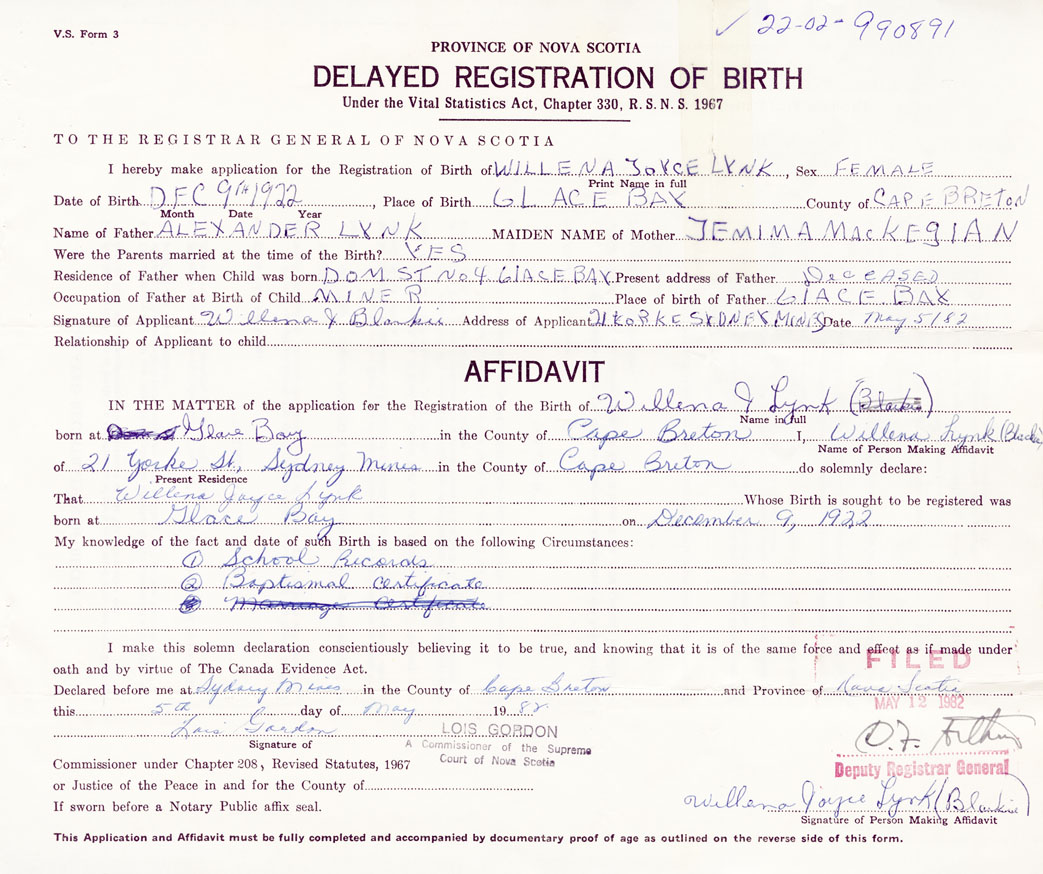 V.S. Form 3
✓ 22-02-990891
PROVINCE OF NOVA SCOTIA
DELAYED REGISTRATION OF BIRTH
Under the Vital Statistics Act, Chapter 330, R. S. N. S. 1967
TO THE REGISTRAR GENERAL OF NOVA SCOTIA
I hereby make application for the Registration of Birth of WILLENA JOYCE LYNK, Sex FEMALE
Print Name in full
Date of Birth DEC 9TH 1922, Place of Birth GLACE BAY County of CAPE BRETON
Month Date Year
Name of Father ALEXANDER LYNK MAIDEN NAME of Mother JEMIMA MacKEGIAN
Were the Parents married at the time of the Birth? YES
Residence of Father when Child was born DOM. ST No 4 GLACE BAY Present address of Father DECEASED
Occupation of Father at Birth of Child MINER Place of birth of Father GLACE BAY
Signature of Applicant Willena J Blankie Address of Applicant 21 YORKE SYDNEY MINES Date May 5/82
Relationship of Applicant to child
AFFIDAVIT
IN THE MATTER of the application for the Registration of the Birth of Willena J Lynk
Name in full
born at Glace Bay in the County of Cape Breton I, Willena Lynk
Name of Person Making Affidavit
of 21 Yorke St, Sydney Mines in the County of Cape Breton do solemnly declare:
Present Residence
That Willena Joyce Lynk Whose Birth is sought to be registered was
born at Glace Bay on December 9, 1922
My knowledge of the fact and date of such Birth is based on the following Circumstances:
① School Records
② Baptismal Certificate
Marriage Certificate
I make this solemn declaration conscientiously believing it to be true, and knowing that it is of the same force and effect as if made under
oath and by virtue of The Canada Evidence Act.
FILED
Declared before me at Sydney Mines in the County of Cape Breton and Province of Nova Scotia
MAY 12 1982
this 5th day of May 1982
Lois Gordon LOIS GORDON
Signature of A Commissioner of the Supreme
Court of Nova Scotia
Commissioner under Chapter 208, Revised Statutes, 1967
Deputy Registrar General
or Justice of the Peace in and for the County of
Willena Joyce Lynk (Blankie)
If sworn before a Notary Public affix seal.
Signature of Person Making Affidavit
This Application and Affidavit must be fully completed and accompanied by documentary proof of age as outlined on the reverse side of this form.